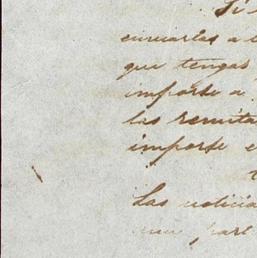 Si
enviarlas a
que tengas
importe a
las remita
importe e
Las noticia